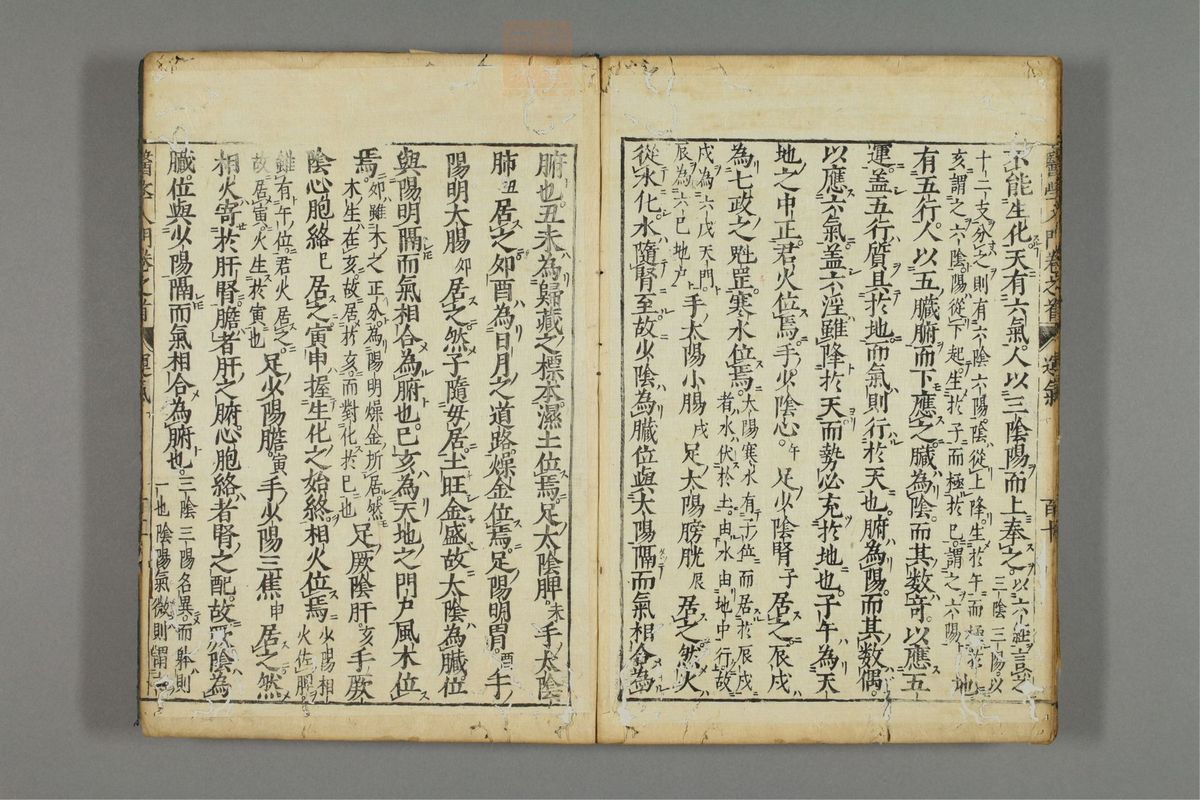 不能生化天有六氣人以三陰陽而上奉之以六經言之三陰三陽以
十二支分之則有六陰六陽陰從上降生於午而極於
亥謂之六陰陽從下起生於子而極於巳謂之六陽地
有五行人以五臟腑而下應之臟為陰而其數奇以應五
運盖五行質具於地而氣則行於天也腑為陽而其數偶
以應六氣盖六淫雖降於天而勢必充於地也子午為天
地之中正君火位焉手少陰心午足少陰腎子居之辰戌
為七政之魁罡寒水位焉太陽寒水有子位而居於辰戌者水伏於土由水由地中行故
戌為六戊天門辰為六己地户手太陽小腸戌足太陽膀胱辰居之然火
從水化水隨腎至故少陰為臟位與太陽隔而氣相合為
醫學入門卷之首
運氣
腑也丑未為歸藏之標本濕土位焉足太陰脾未手太陰
肺丑居之夘酉為日月之道路燥金位焉足陽明胃酉手
陽明大腸夘居之然子隨母居土旺金盛故太陰為臟位
與陽明隔而氣相合為腑也巳亥為天地之門户風木位
焉夘雖木之正分為陽明燥金所居然木生在亥故居於亥而對化於巳也足厥陰肝亥手厥
陰心胞絡巳居之寅申握生化之始終相火位焉少陽相火佐
雖有午位君火居之故居寅火生於寅也足少陽膽寅手少陽三焦申居之然
相火寄於肝腎膽者肝之腑心胞絡者腎之配故厥陰為
臟位與少陽隔而氣相合為腑也三陰三陽名異而躰則一也陰陽氣微則謂
醫學入門卷之首
運氣